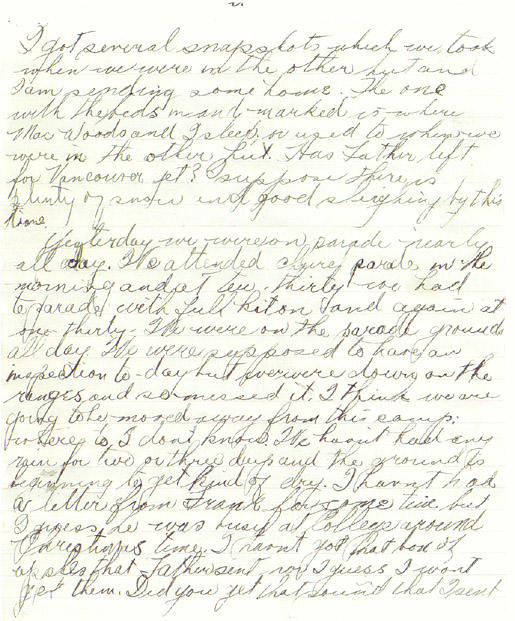 I got several snapshots which we took
when we were in the other hut and
I am sending some home. The one
with the beds in and marked is where
Mac Woods and I sleep or used to when we
were in the other hut. Has Father left
for Vancouver yet? suppose there is
plenty of snow and good sleighing by this
time
Yesterday we were on parade nearly
all day. We attended church parade in the
morning and at ten thirty we had
to parade with full kit on and again at
one-thirty. We were on the parade grounds
all day. We were supposed to have an
inspection to-day but we were down on the
ranges and so missed it. I think we are
going to be moved away from this camp:
where to, I dont know. We havnt had any
rain for two or three days and the ground is
beginning to get kind of dry. I havnt had
a letter from Frank for some time but
I guess he was busy at College around
Christmas time. I havnt got that box of
apples that Father sent nor I guess I wont
get them. Did you get that that I sent